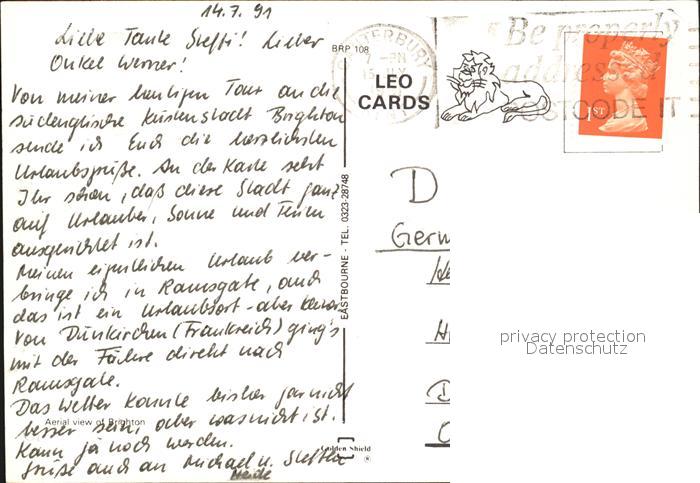 14.7.91
Liebe Tante Steffi! Lieber
Onkel Werner!
Von meiner heutigen Tour an die
südenglische Küstenstadt Brighton
sende ich Euch die herzlichsten
Urlaubsgrüße. An der Karte seht
Ihr schon, daß diese Stadt ganz
auf Urlauber, Sonne und Ferien
ausgerichtet ist.
Meinen eigentlichen Urlaub ver-
bringe ich in Ramsgate, auch
das ist ein Urlaubsort - aber
Von Dünkirchen (Frankreich) ging's
mit der Fähre direkt nach
Ramsgate.
Das Wetter könnte bisher gar nicht
besser sein, aber was nicht ist.
Kann ja noch werden.
Grüße auch an Michael u. Steffen
Heide
Aerial view of Brighton
Golden Shield
EASTBOURNE - TEL. 0323-28748
BRP 108
LEO
CARDS
Be properly
addressed
POSTCODE IT
1ST
D
Germ
privacy protection
Datenschutz